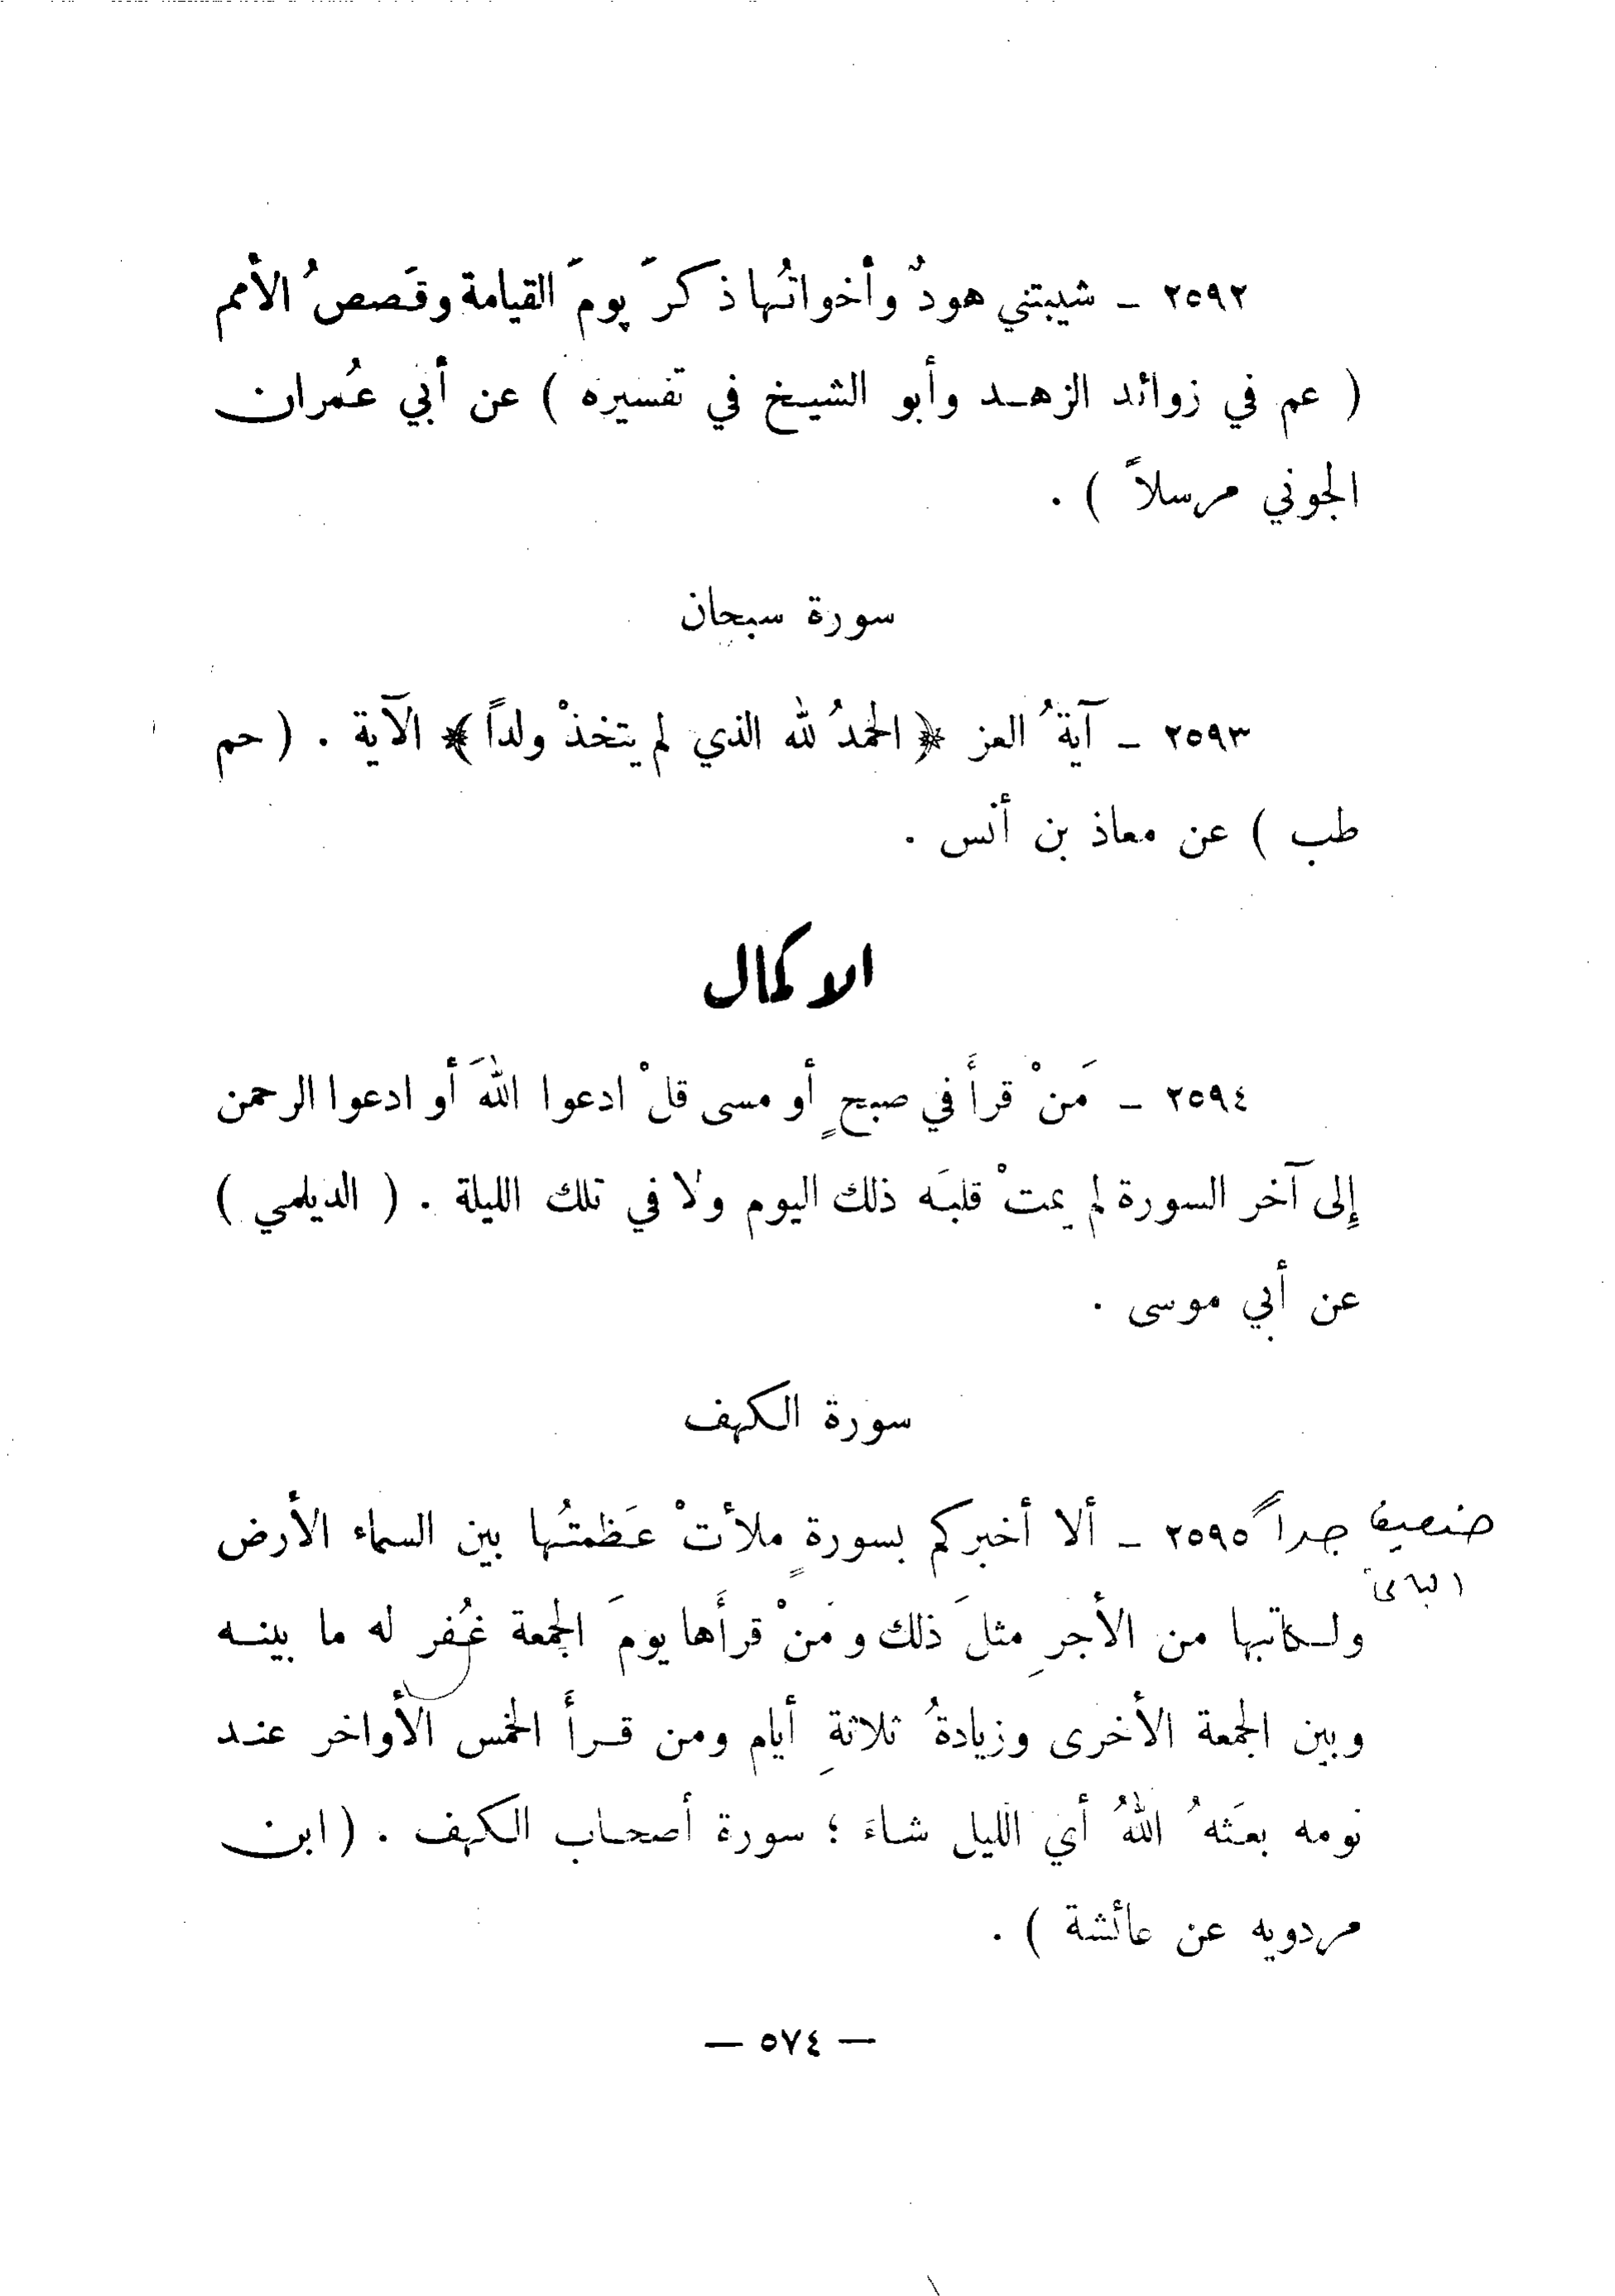 ٢٥٩٢ – شيبتني هودٌ وأخواتُها ذكرَ يومَ القيامة وقَصصُ الأمم
( عم في زوائد الزهـد وأبو الشيـخ في تفسيره ) عن أبي عُمران
الجوني مرسلاً ) .
سورة سبحان
٢٥٩٣ – آيةُ العز ﴿ الحمدُ لله الذي لم يتخذْ ولداً ﴾ الآية . ( حم
طب ) عن معاذ بن أنس .
الاكمال
٢٥٩٤ – مَنْ قرأَ في صبحٍ أو مسى قلْ ادعوا اللهَ أو ادعوا الرحمن
إِلى آخر السورة لم يمتْ قلبَه ذلك اليوم ولا في تلك الليلة . ( الديلمي )
عن أبي موسى .
سورة الكهف
ضعيف جداً ٢٥٩٥ – ألا أخبركم بسورةٍ ملأتْ عَظمتُها بين السماء الأرض
ولـكاتبها من الأجرِ مثلَ ذلك ومَنْ قرأَها يومَ الجمعة غُفر له ما بينـه
وبين الجمعة الأخرى وزيادةُ ثلاثةِ أيام ومن قـرأَ الخمس الأواخر عنـد
نومه بعَثهُ اللهُ أي الليل شاءَ ؛ سورة أصحـاب الكهف . ( ابن
مردويه عن عائشة ) .
— ٥٧٤ —